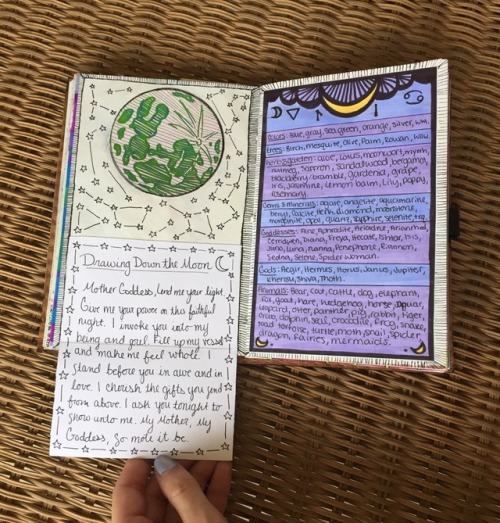 Drawing Down the Moon
Mother Goddess, lend me your light
Give me your power on this faithful
night. I invoke you into my
being and soul. Fill up my vessel
and make me feel whole. I
stand before you in awe and in
love. I cherish the gifts you send
from above. I ask you tonight to
show unto me. My Mother, My
Goddess, So mote it be.
Colors: Blue, gray, sea green, orange, silver,
Trees: Birch, mesquite, Olive, Palm, Rowan, Willow
Herbs/garden: aloe, lotus, moonwort, myrrh,
nutmeg, saffron, sandalwood, bergamot,
blackberry/bramble, gardenia, grape,
iris, jasmine, lemon balm, lily, poppy,
rosemary.
Gems & Minerals: agate, angelite, aquamarine,
beryl, calcite, Herk. diamond, moonstone,
opal, quartz, sapphire, selenite,
Goddesses: Aine, Aphrodite, Ariadne, Arianrhod,
Cerridwen, Diana, Freya, Hecate, Ishtar, Isis,
Juno, Luna, Nanna, Persephone, Rhiannon,
Sedna, Selene, Spider woman.
Gods: Aegir, Hermes, Horus, Janus, Jupiter,
Khensu, Shiva, Thoth.
Animals: Bear, cat, cattle, dog, elephant,
fox, goat, hare, hedgehog, horse, jaguar,
leopard, otter, panther, pig, rabbit, tiger,
dolphin, seal, crocodile, frog, snake,
toad, tortoise, turtle, moth, snail, spider,
dragon, fairies, mermaids.